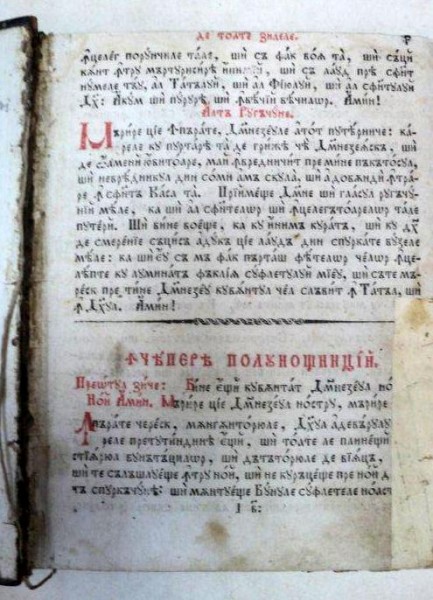 де тоате зилеле.
ꙟцелег порꙋнчиле тале, ши съ фак воѧ та, ши съций
кѫнт ꙟтрꙋ мъртꙋрисирѣ инимїй, ши съ лаꙋд прѣ сфѫнт
нꙋмеле тъꙋ, ал Татълꙋй, ши ал Фїюлꙋй, ши ал сфѫнтꙋлꙋй
Дх҃: Акꙋм ши пꙋрꙋрѣ, ши ꙟвѣчїи вѣчилѡр. Амин!
Алтъ Рꙋгъчꙋне.
Мърире цїе ꙟпърате, Дм҃незеꙋле атот пꙋтѣрниче: ка-
реле кꙋ пꙋртарѣ та де грижѣ чѣ Дм҃незеѧскъ, ши
де ѡамени юбитоаре, май ꙟвредничит пре мине пъкътосꙋл,
ши невредникꙋл дин сомн ам скꙋла, ши а добѫнди ꙟтра-
ре ꙟ сфѫнта Каса та. Прїимѣще Дм҃не ши гласꙋл рꙋгъчꙋ-
нїи мѣле, ка ши ал сфинтелѡр ши ꙟцелегътоарелѡр тале
пꙋтери. Ши бине воѣще, ка кꙋ инимъ кꙋратъ, ши кꙋ дх҃
де смеренїе съцисъ адꙋкъ цїе лаꙋдъ дин спꙋркате бꙋзеле
мѣле: ка ши еꙋ съ мъ фак пърташ фѣтелѡр челѡр ꙟце-
лѣпте кꙋ лꙋминатъ фъклїѧ сꙋфлетꙋлꙋй мїеꙋ, ши съте мъ-
реск пре тине Дм҃незеꙋ кꙋвѫнтꙋл чел слъвит ꙟ Татъл, ши
ꙟ Дх҃ꙋл. Амин!
ꙞЧѢПЕРѢ ПОЛꙊНОЩНИЦІЙ.
Преѡтꙋл зиче: Бине ещй кꙋвѫнтат Дм҃незеꙋл но
Ной Амин. Мърире цїе Дм҃незеꙋл нострꙋ, мърире
ꙟпърате череск, мѫнгѫиторюле, Дх҃ꙋл адевърꙋлꙋ
реле претꙋтиндинѣ ещй, ши тоате ле плинещй
стїѧрюл бꙋнътъцилѡр, ши дътъторюле де вїацъ,
ши те сълъшлꙋѣще ꙟтрꙋ ной, ши не кꙋръцѣще пре ной д
тъ спꙋркъчꙋнѣ: ши мѫнтꙋѣще Бꙋнꙋле сꙋфлетеле ноаст